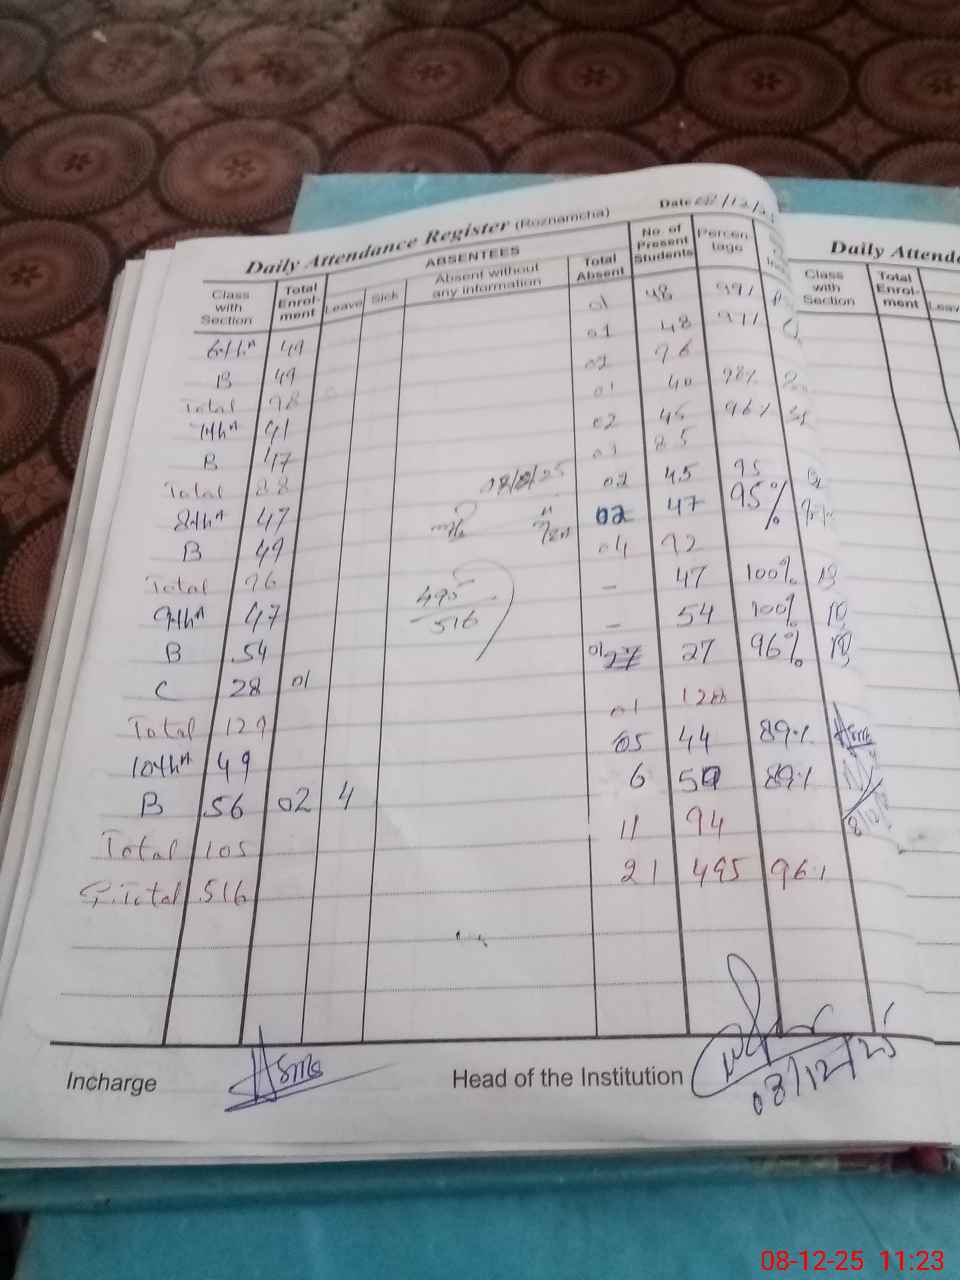 Daily Attendance Register (Roznamcha) Date 08/12/25
Class with Section Total Enrol-ment ABSENTEES Leave Sick Absent without any information Total Absent No. of Present Students Percen-tage
6th A 49 01 48 99%
B 49 01 48 97%
Total 98 02 96
7th A 41 01 40 98%
B 47 02 45 96%
Total 88 03 85
8th A 47 02 45 95
B 49 02 47 95%
Total 96 04 92
9th A 47 – 47 100%
B 54 – 54 100%
C 28 01 01 27 96%
Total 129 01 128
10th A 49 05 44 89%
B 56 02 4 6 50 89%
Total 105 11 94
G.Total 516 21 495 96%
495
516
Incharge
Head of the Institution
08/12/25
Daily Attend
Class with Section Total Enrol-ment Leav
08-12-25 11:23